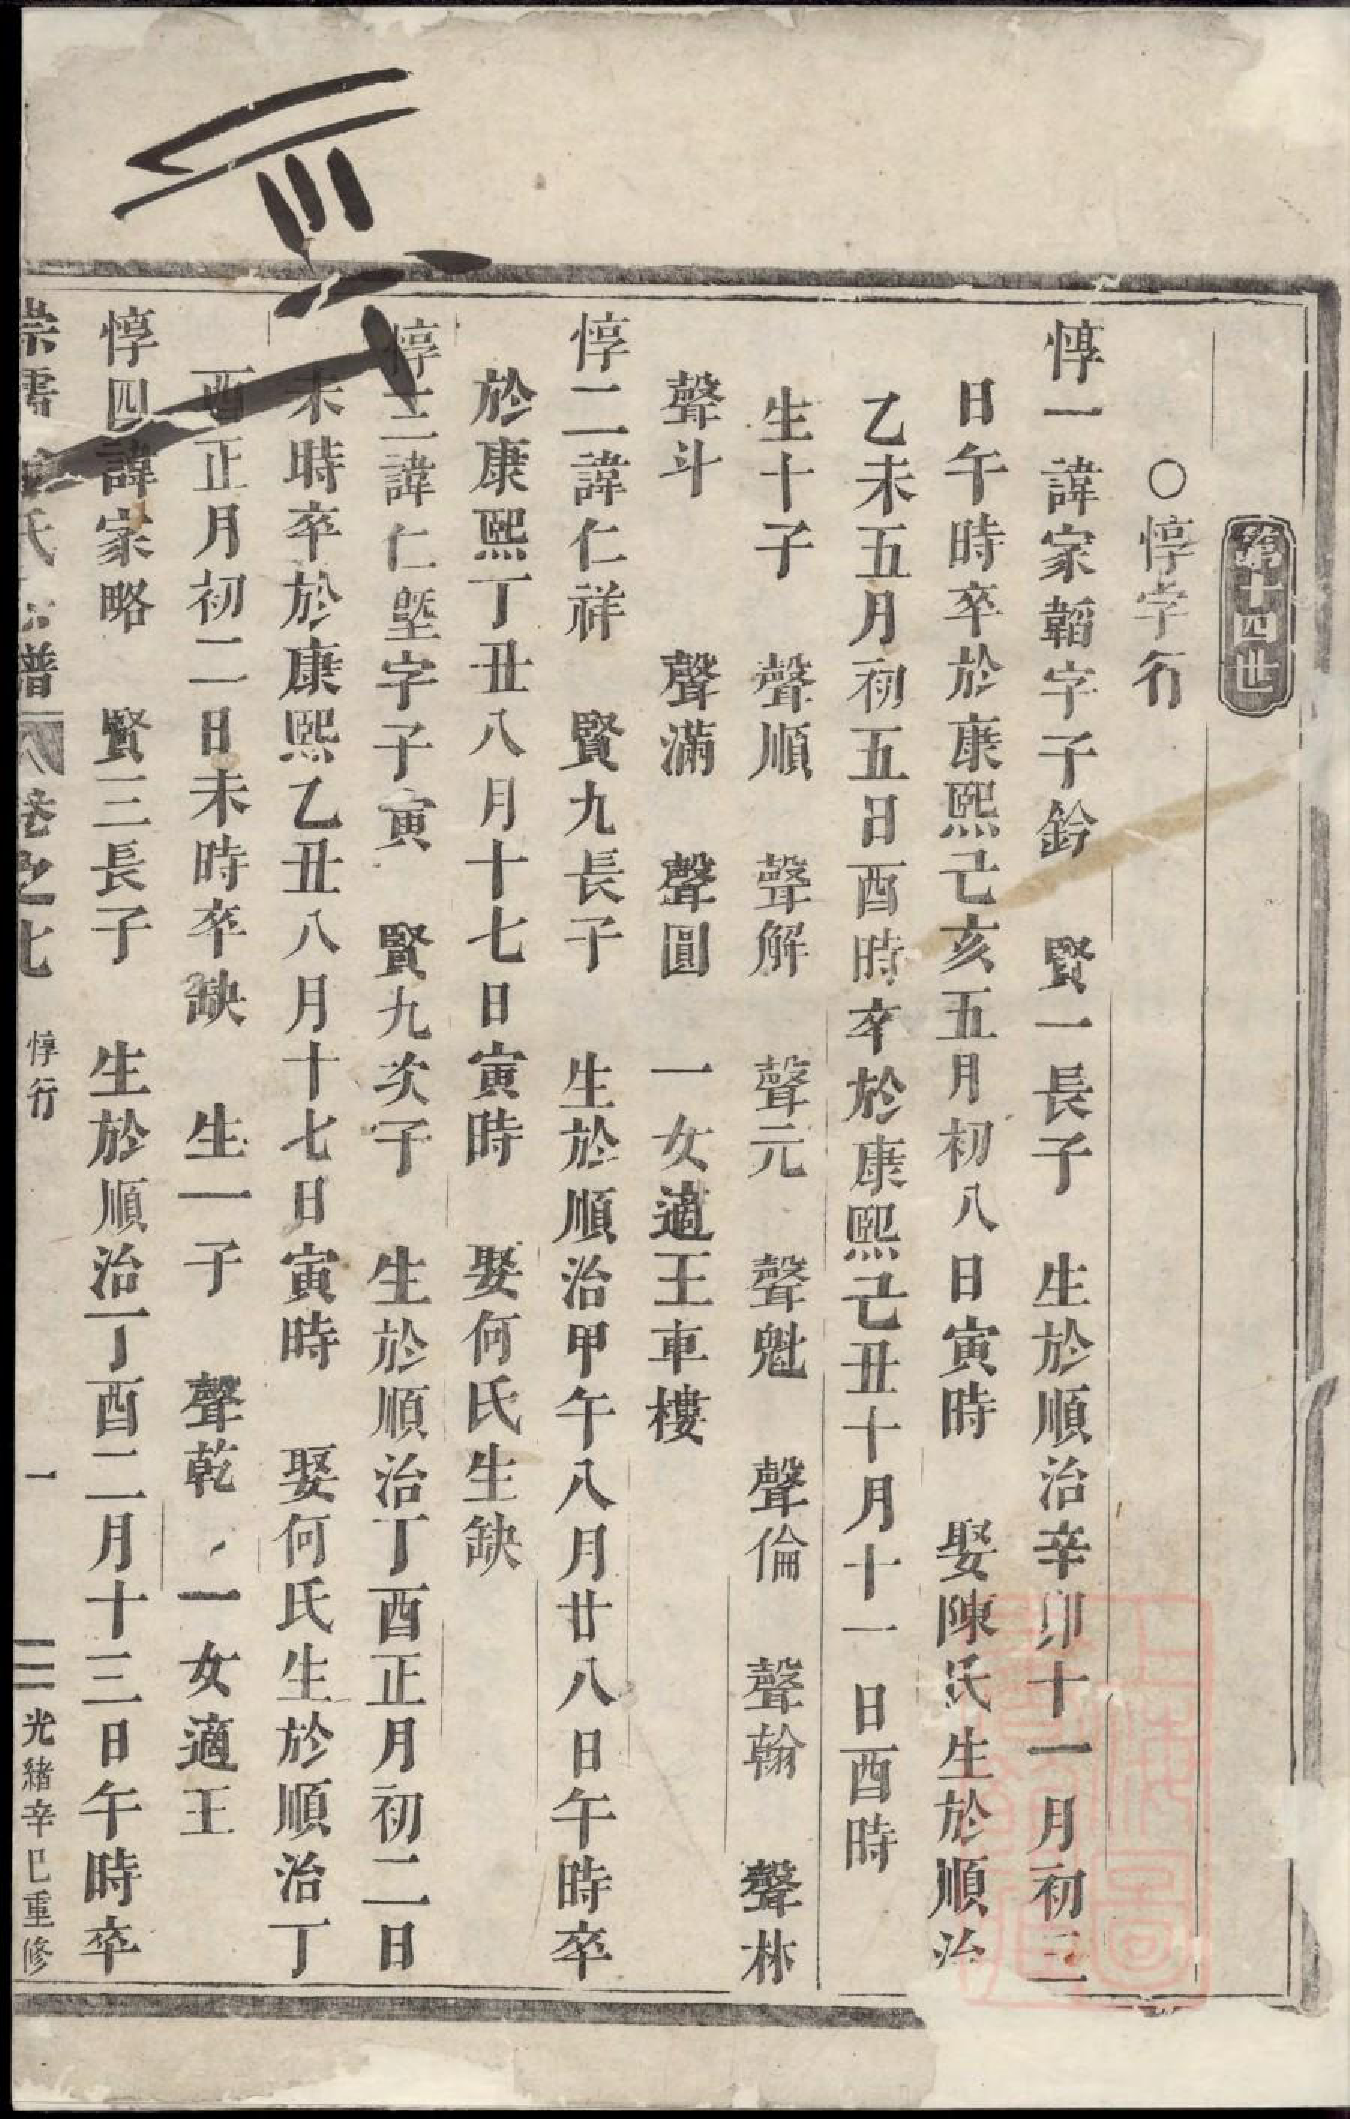 第十四世
○惇字行
惇一諱家韜字子鈐 賢一長子 生於順治辛卯十一月初三
日午時卒於康熙己亥五月初八日寅時 娶陳氏生於順治
乙未五月初五日酉時卒於康熙己丑十月十一日酉時
生十子 聲順 聲解 聲元 聲魁 聲倫 聲翰 聲林
聲斗 聲滿 聲圓 一女適王車樓
惇二諱仁祥 賢九長子 生於順治甲午八月廿八日午時卒
於康熙丁丑八月十七日寅時 娶何氏生缺
惇三諱仁塈字子寅 賢九次子 生於順治丁酉正月初二日
未時卒於康熙乙丑八月十七日寅時 娶何氏生於順治丁
酉正月初二日未時卒缺 生一子 聲乾 一女適王
惇四諱家略 賢三長子 生於順治丁酉二月十三日午時卒
氏 譜 卷之七 惇行 一 光緒辛巳重修
上海圖